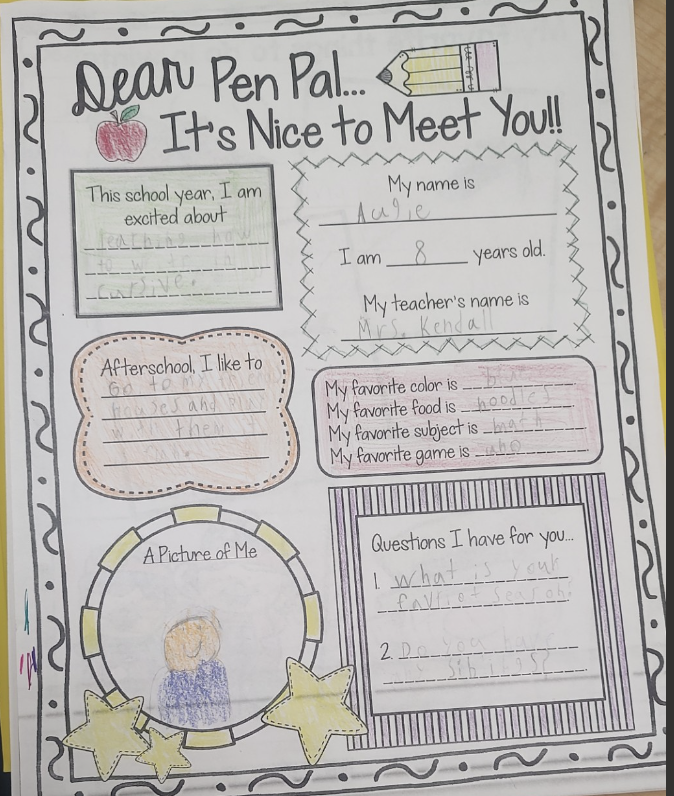 Dear Pen Pal...
It's Nice to Meet You!!
This school year, I am
excited about
learning how
to write in
cursive.
My name is
Augie
I am 8 years old.
My teacher's name is
Mrs. Kendall
Afterschool, I like to
Go to my
houses and play
with them if
I can.
My favorite color is blue
My favorite food is noodles
My favorite subject is math
My favorite game is uno
A Picture of Me
Questions I have for you...
1. What is your
favriet
2. Do you have
siblings?